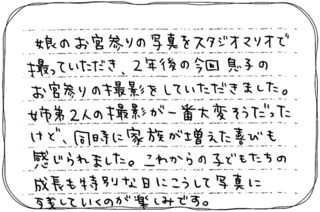 娘のお宮参りの写真をスタジオマリオで
撮っていただき、2年後の今回息子の
お宮参りの撮影をしていただきました。
姉弟2人の撮影が一番大変そうだった
けど、同時に家族が増えた喜びも
感じられました。これからの子どもたちの
成長も特別な日にこうして写真に
残していくのが楽しみです。